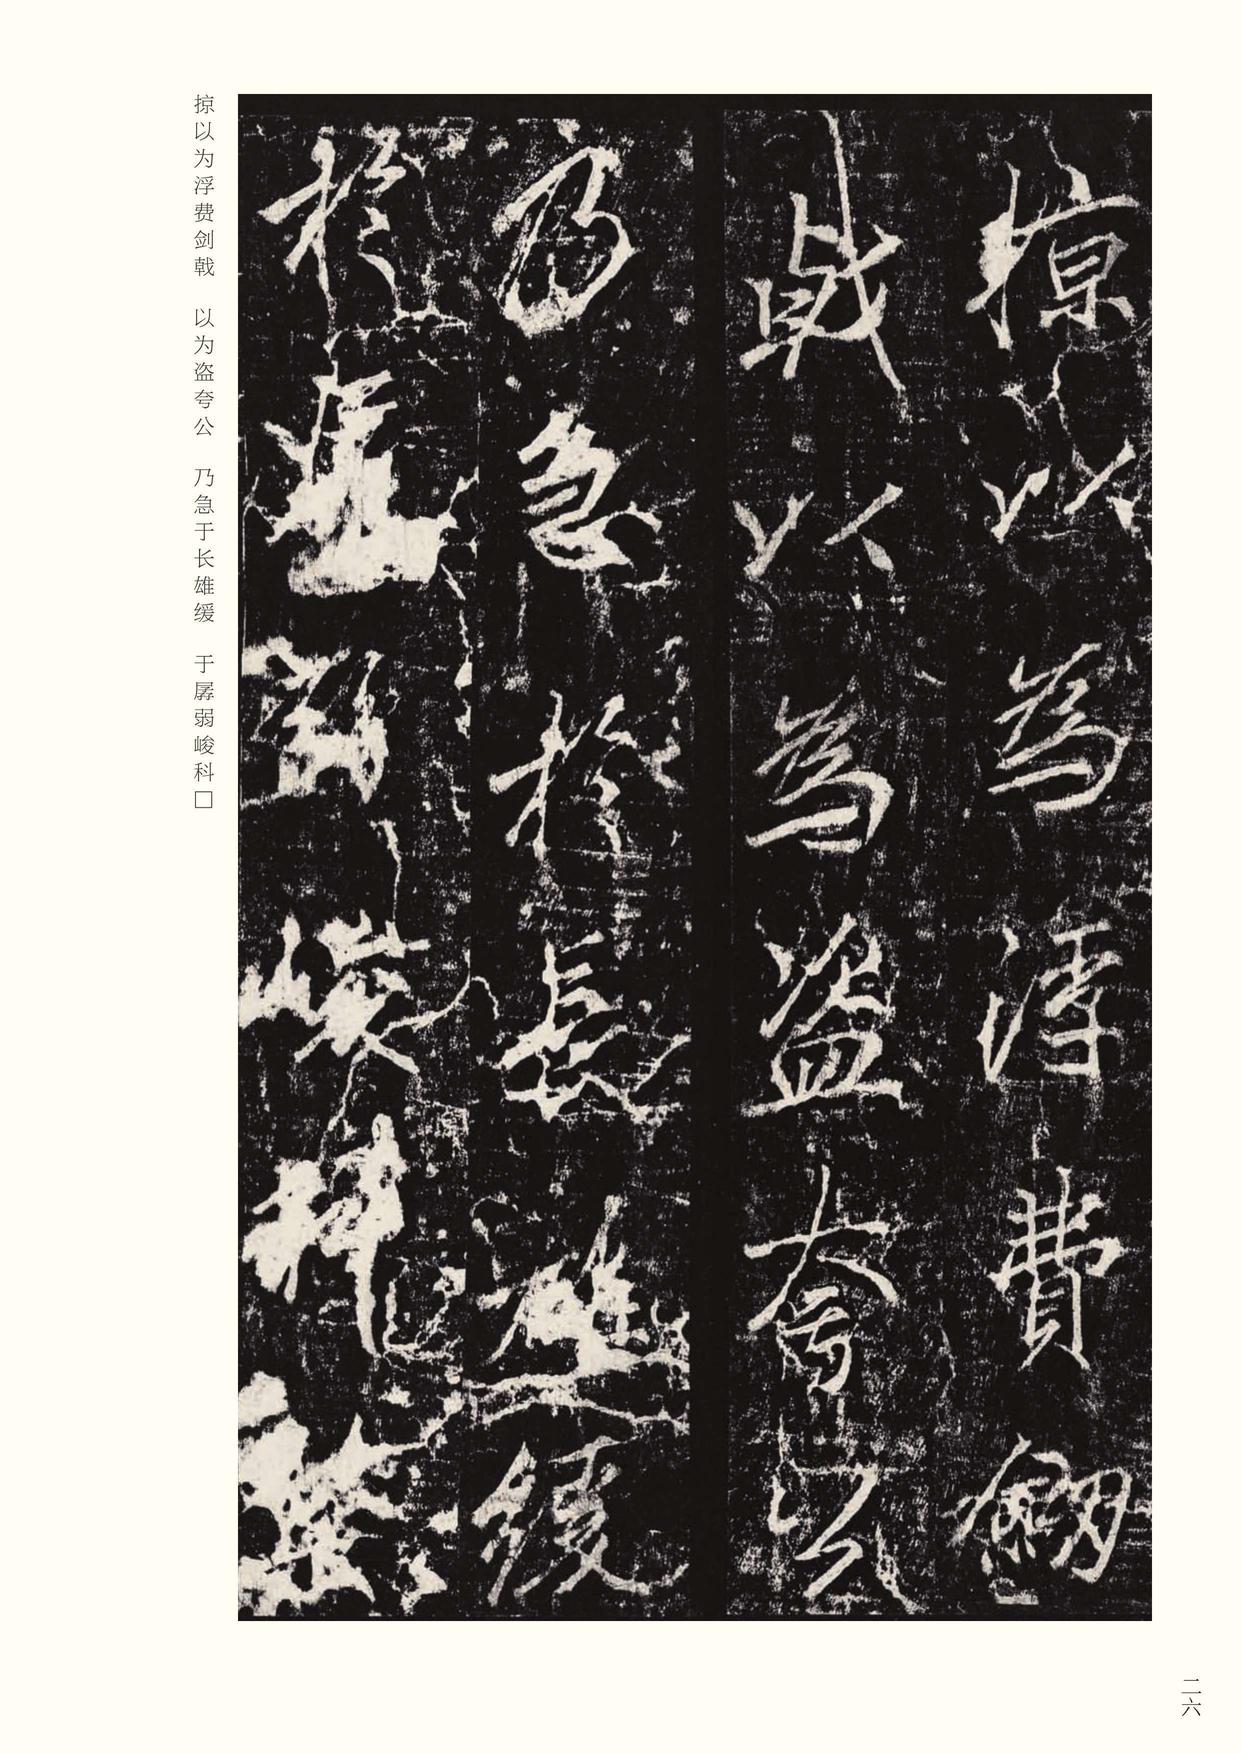 掠以為浮費劒
戟以為盗夸公
乃急於長雄緩
於孱弱峻科
掠以为浮费剑戟　以为盗夸公　乃急于长雄缓　于孱弱峻科□
二六